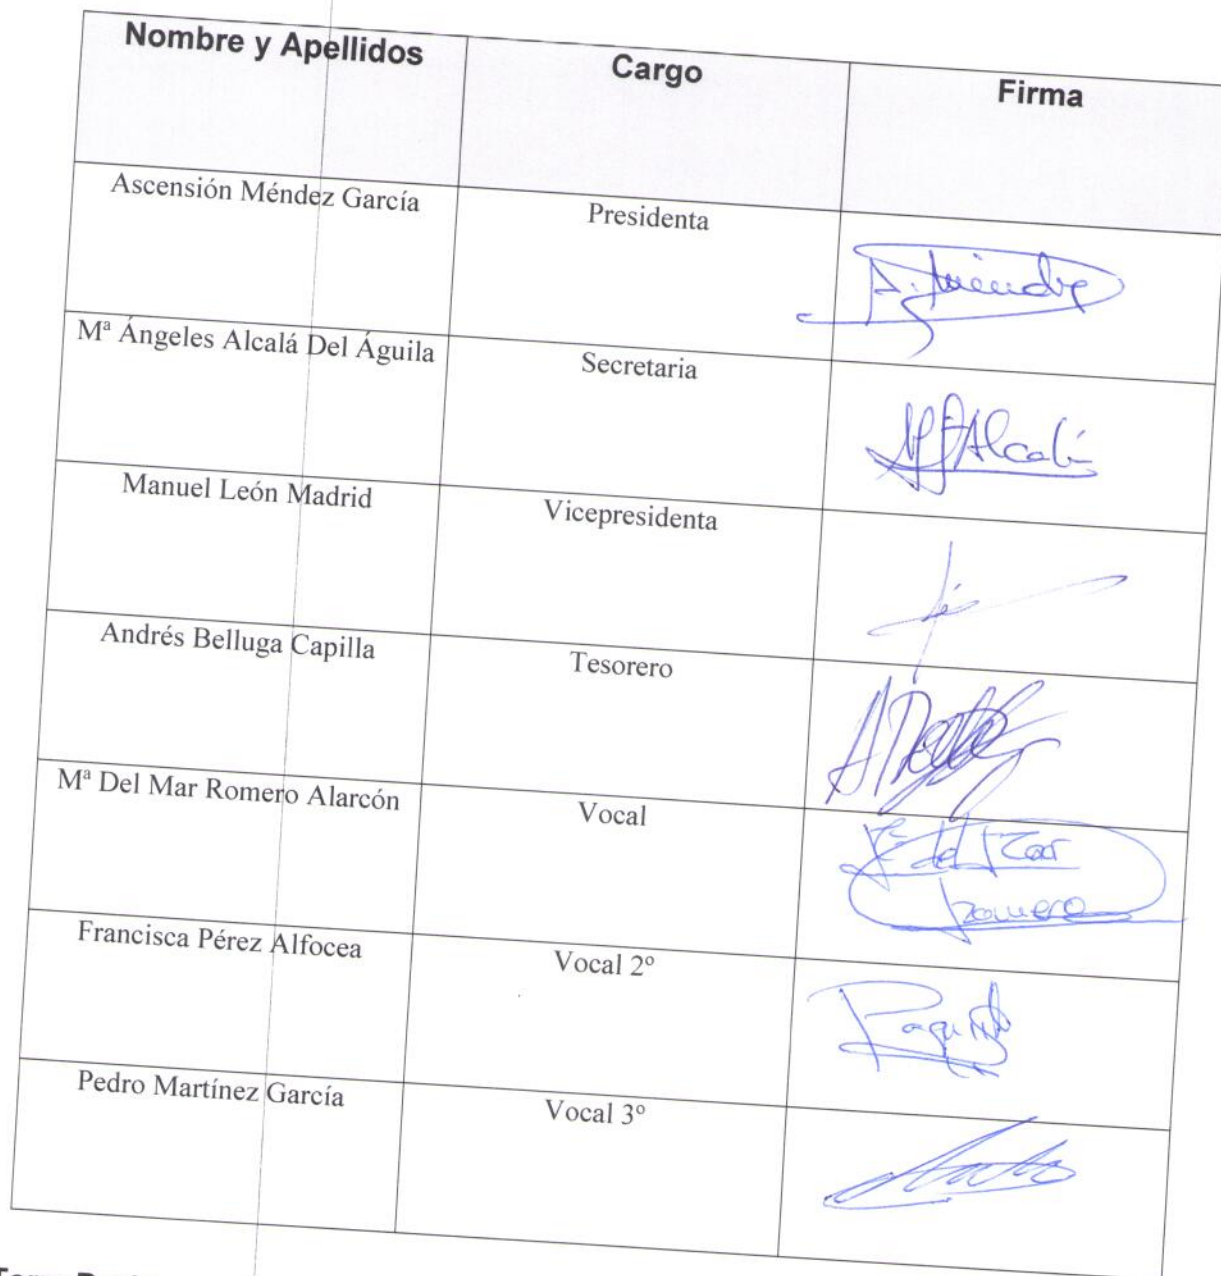 Nombre y Apellidos Cargo Firma
Ascensión Méndez García Presidenta A. Méndez
Mª Ángeles Alcalá Del Águila Secretaria Mª Alcalá
Manuel León Madrid Vicepresidenta
Andrés Belluga Capilla Tesorero
Mª Del Mar Romero Alarcón Vocal Mª del Mar
Romero
Francisca Pérez Alfocea Vocal 2º
Pedro Martínez García Vocal 3º